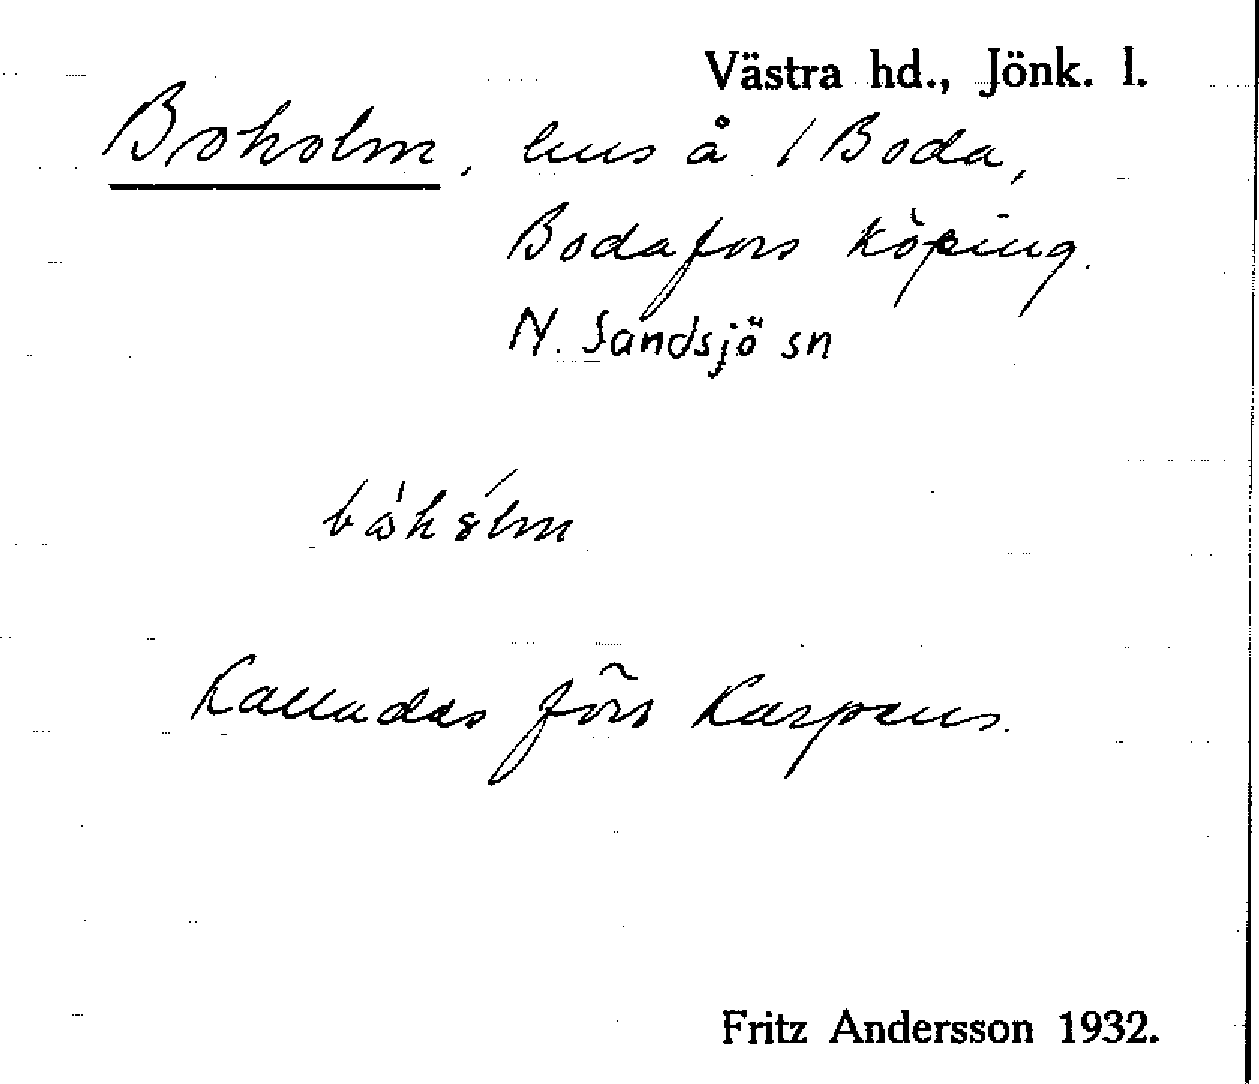 Västra hd., Jönk. l.
Boholm, hus å 1 Boda,
Bodafors köping.
N. Sandsjö sn
Kallades förr Karpens.
Fritz Andersson 1932.